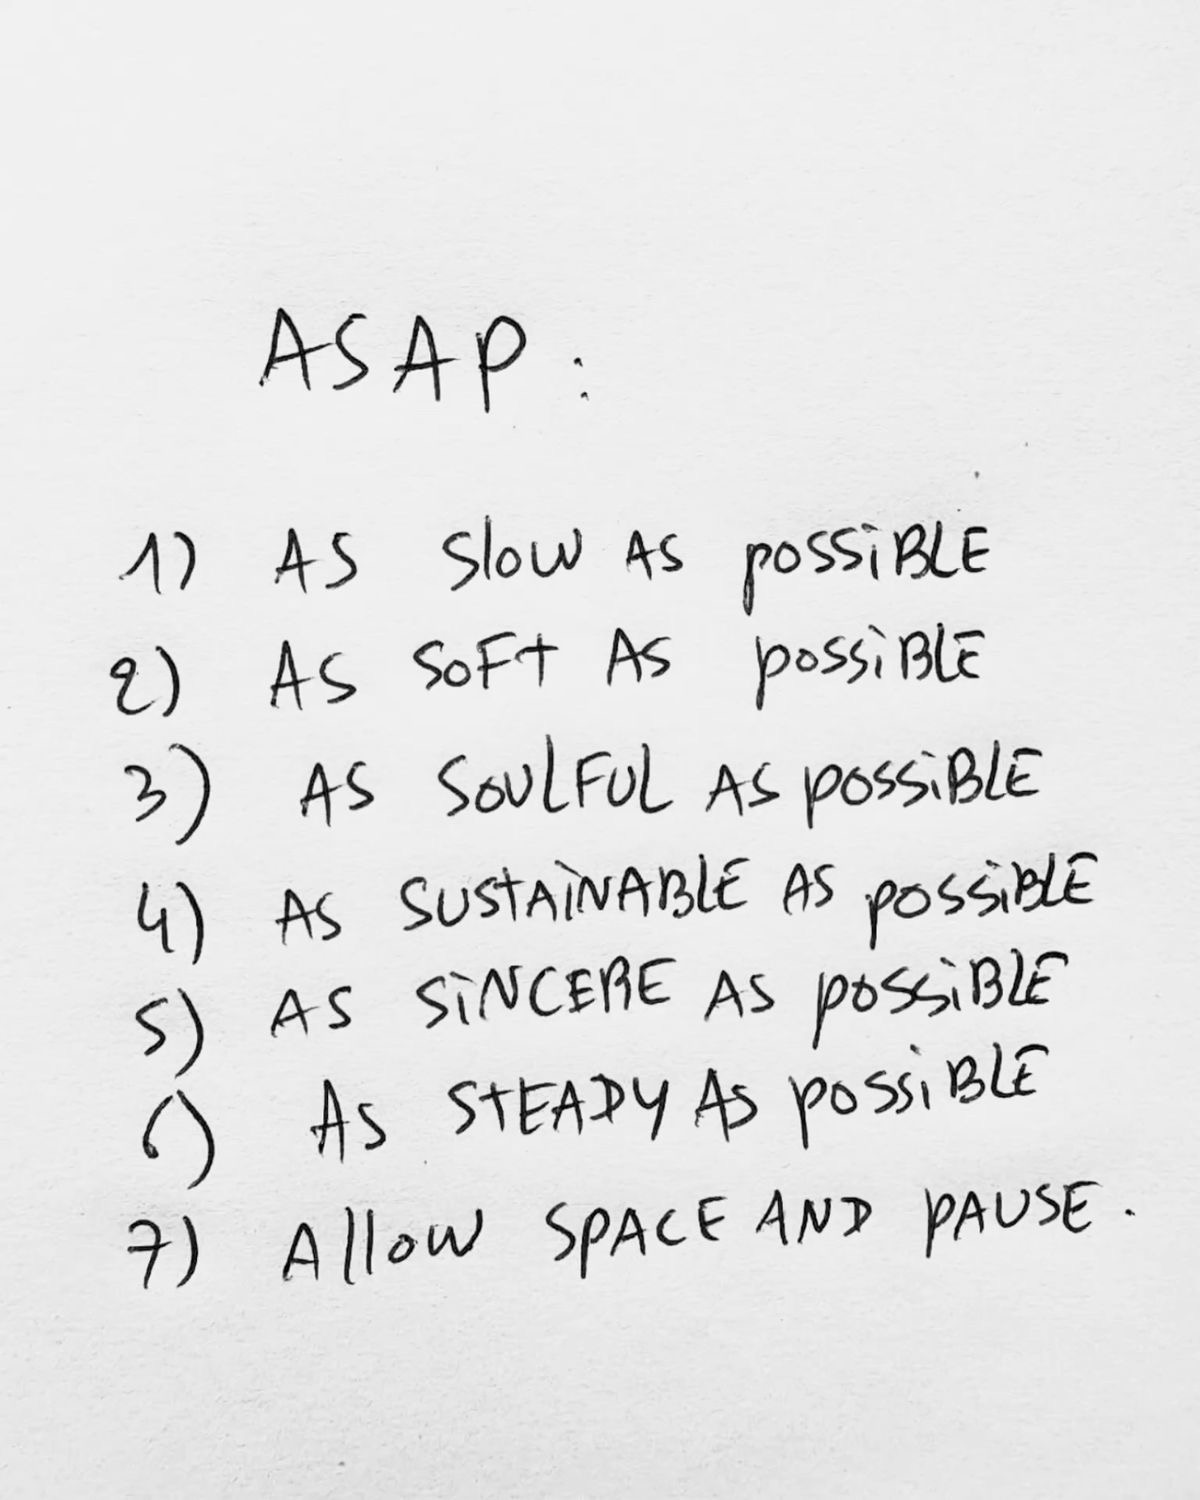 ASAP:
1) AS Slow AS possiBLE
2) AS SOFt AS possiBLE
3) AS SOULFUL AS possiBLE
4) AS SUStAiNABLE AS possiBLE
5) AS SiNCERE AS possiBLE
6) AS StEADY AS possiBLE
7) Allow SPACE AND PAUSE.